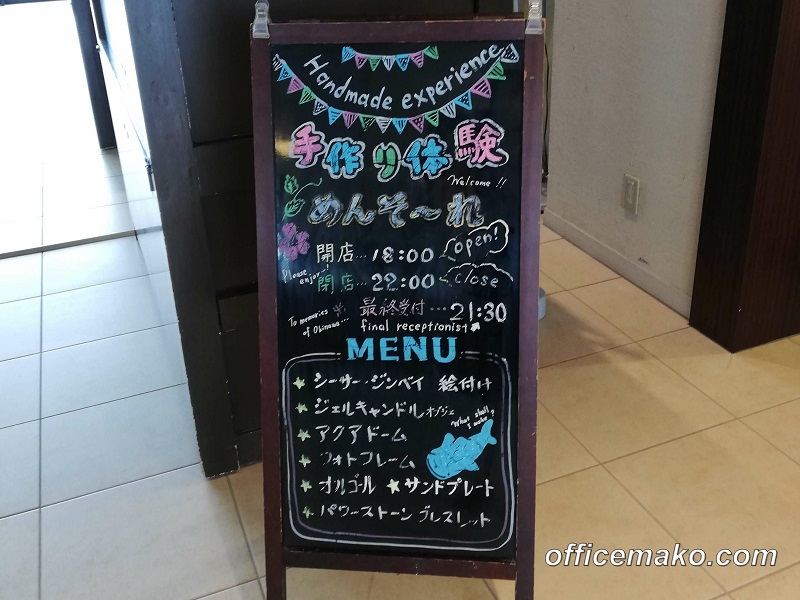 Handmade experience
手作り体験
Welcome !!
めんそ～れ
開店…18:00 open!
Please enjoy!
閉店…22:00 close
To memories of Okinawa...
最終受付…21:30
final receptionist
MENU
★シーサー・ジンベイ 絵付け
★ジェルキャンドル オブジェ
What shall I make?
★アクアドーム
★フォトフレーム
★オルゴール ★サンドプレート
★パワーストーン ブレスレット
officemako.com